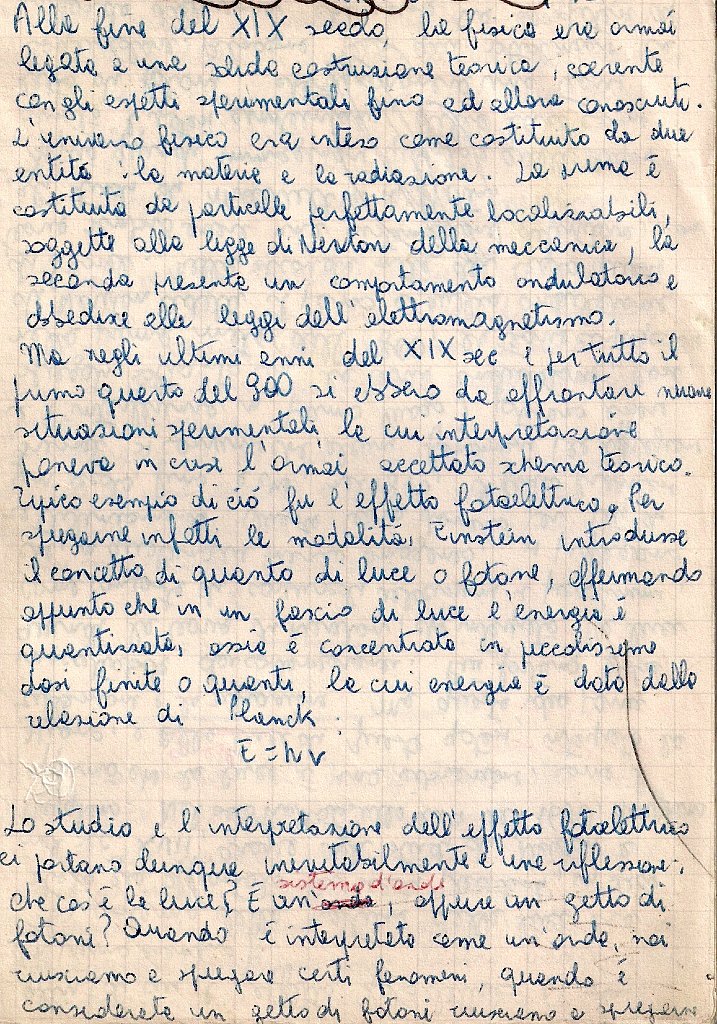 Alla fine del XIX secolo, la fisica era ormai
legata a una solida costruzione teorica, coerente
con gli effetti sperimentali fino ad allora conosciuti.
L'universo fisico era inteso come costituito da due
entità: la materia e la radiazione. La prima è
costituita da particelle perfettamente localizzabili,
soggette alla legge di Newton della meccanica, la
seconda presenta un comportamento ondulatorio e
obbedire alle leggi dell'elettromagnetismo.
Ma negli ultimi anni del XIX sec e per tutto il
primo quarto del 900 si ebbero da affrontare
situazioni sperimentali, la cui interpretazione
poneva in crisi l'ormai accettato schema teorico.
Tipico esempio di ciò fu l'effetto fotoelettrico. Per
spiegarne infatti le modalità, Einstein introdusse
il concetto di quanto di luce o fotone, affermando
appunto che in un fascio di luce l'energia è
quantizzata, ossia è concentrata in piccolissime
dosi finite o quanti, la cui energia è data dalla
relazione di Planck:
E = hν
Lo studio e l'interpretazione dell'effetto fotoelettrico
ci portano dunque inevitabilmente a una riflessione:
sistema d'onde
che cos'è la luce? È un'onda, oppure un getto di
fotoni? Quando è interpretata come un'onda, noi
riusciamo a spiegare certi fenomeni, quando è
considerata un getto di fotoni riusciamo a spiegarne